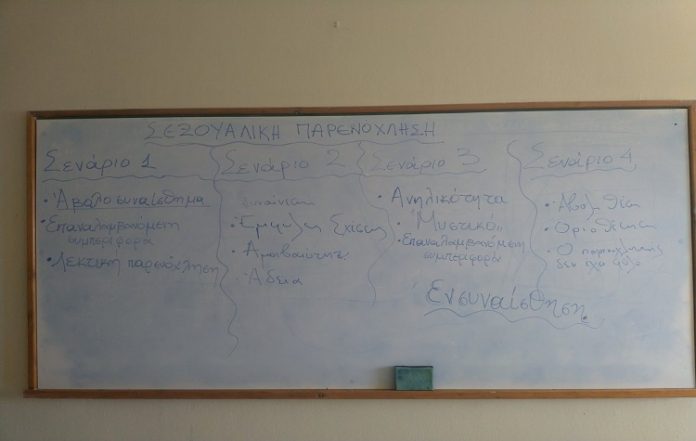 ΣΕΞΟΥΑΛΙΚΗ ΠΑΡΕΝΟΧΛΗΣΗ
Σενάριο 1
• Άβολο συναίσθημα
• Επαναλαμβανόμενη
συμπεριφορά
• Λεκτική παρενόχληση
Σενάριο 2
• Σχέσης
•
• Άδεια
Σενάριο 3
• Ανηλικότητα
• "Μυστικό"
• Επαναλαμβανόμενη
συμπεριφορά
Σενάριο 4
•
• Οριοθέτηση
• Ο
δεν έχει φύλο
Ενσυναίσθηση.